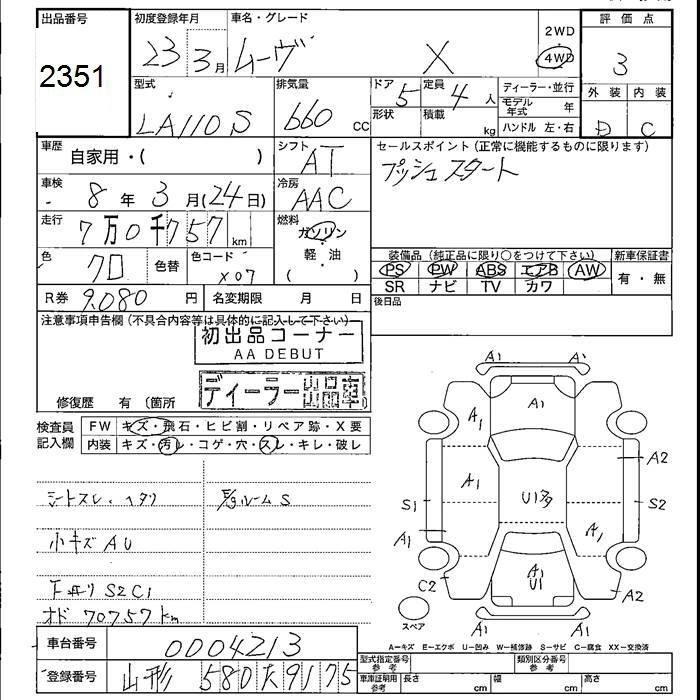 出品番号
2351
初度登録年月
23 3月
車名・グレード
ムーヴ X
2WD
4WD
評価点
3
外装 内装
D C
型式
LA110S
排気量
660 cc
ドア
5
形状
定員
4 人
積載
kg
ディーラー・並行
モデル年式 年
ハンドル 左・右
車歴
自家用・( )
シフト
AT
セールスポイント(正常に機能するものに限ります)
プッシュスタート
車検
8年3月(24日)
冷房
AAC
走行
7万0千757km
燃料
ガソリン
・
軽・油
( )
色
クロ
色替
色コード
X07
装備品(純正品に限り○をつけて下さい)
PS PW ABS エアB AW
SR ナビ TV カワ
新車保証書
有・無
R券 9,080 円
名変期限 月 日
後日品
注意事項申告欄(不具合内容等は具体的に記入して下さい)
初出品コーナー
AA DEBUT
ディーラー出品車
修復歴 有(箇所
検査員記入欄
FW キズ・飛石・ヒビ割・リペア跡・X要
内装 キズ・汚レ・コゲ・穴・スレ・キレ・破レ
シートスレ、ヘタリ
ルームS
小キズAU
下廻りS2C1
オド 70757km
A1 A1
A1
A1
A2
A1
S1
U1多
S2
A1
A1
C2
A1
U1
A2
A1 A1
スペア
A=キズ E=エクボ U=凹み W=補修跡 S=サビ C=腐食 XX=交換済
車台番号
0004213
登録番号
山形 580 た 9175
型式指定番号 参考
類別区分番号 参考
車庫証明用 参考
長さ cm
幅 cm
高さ cm